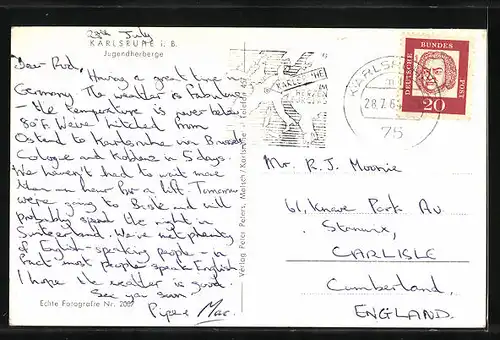 28th July
KARLSRUHE i. B.
Jugendherberge
Dear Rod, Having a great time in
Germany. The weather is fabulous
- the temperature is never below
80°F. We've hitched from
Ostend to Karlsruhe via Brussels
Cologne and Koblenz in 5 days.
We haven't had to wait more
than an hour for a lift. Tomorrow
we're going to Basle and will
probably spend the night in
Switzerland. We've met plenty
of English-speaking people - in
fact most people speak English.
I hope the weather is good.
See you soon
Piper Mac.
Echte Fotografie Nr. 2007
Verlag Peter Peters, Metsch/Karlsruhe
KARLSRUHE
KARLSRUHE
28.7.64
75
DEUTSCHE
BUNDES
POST
20
Mr. R. J. Moonie
61, Knowe Park Av.
Stanwix,
CARLISLE
Cumberland,
ENGLAND.